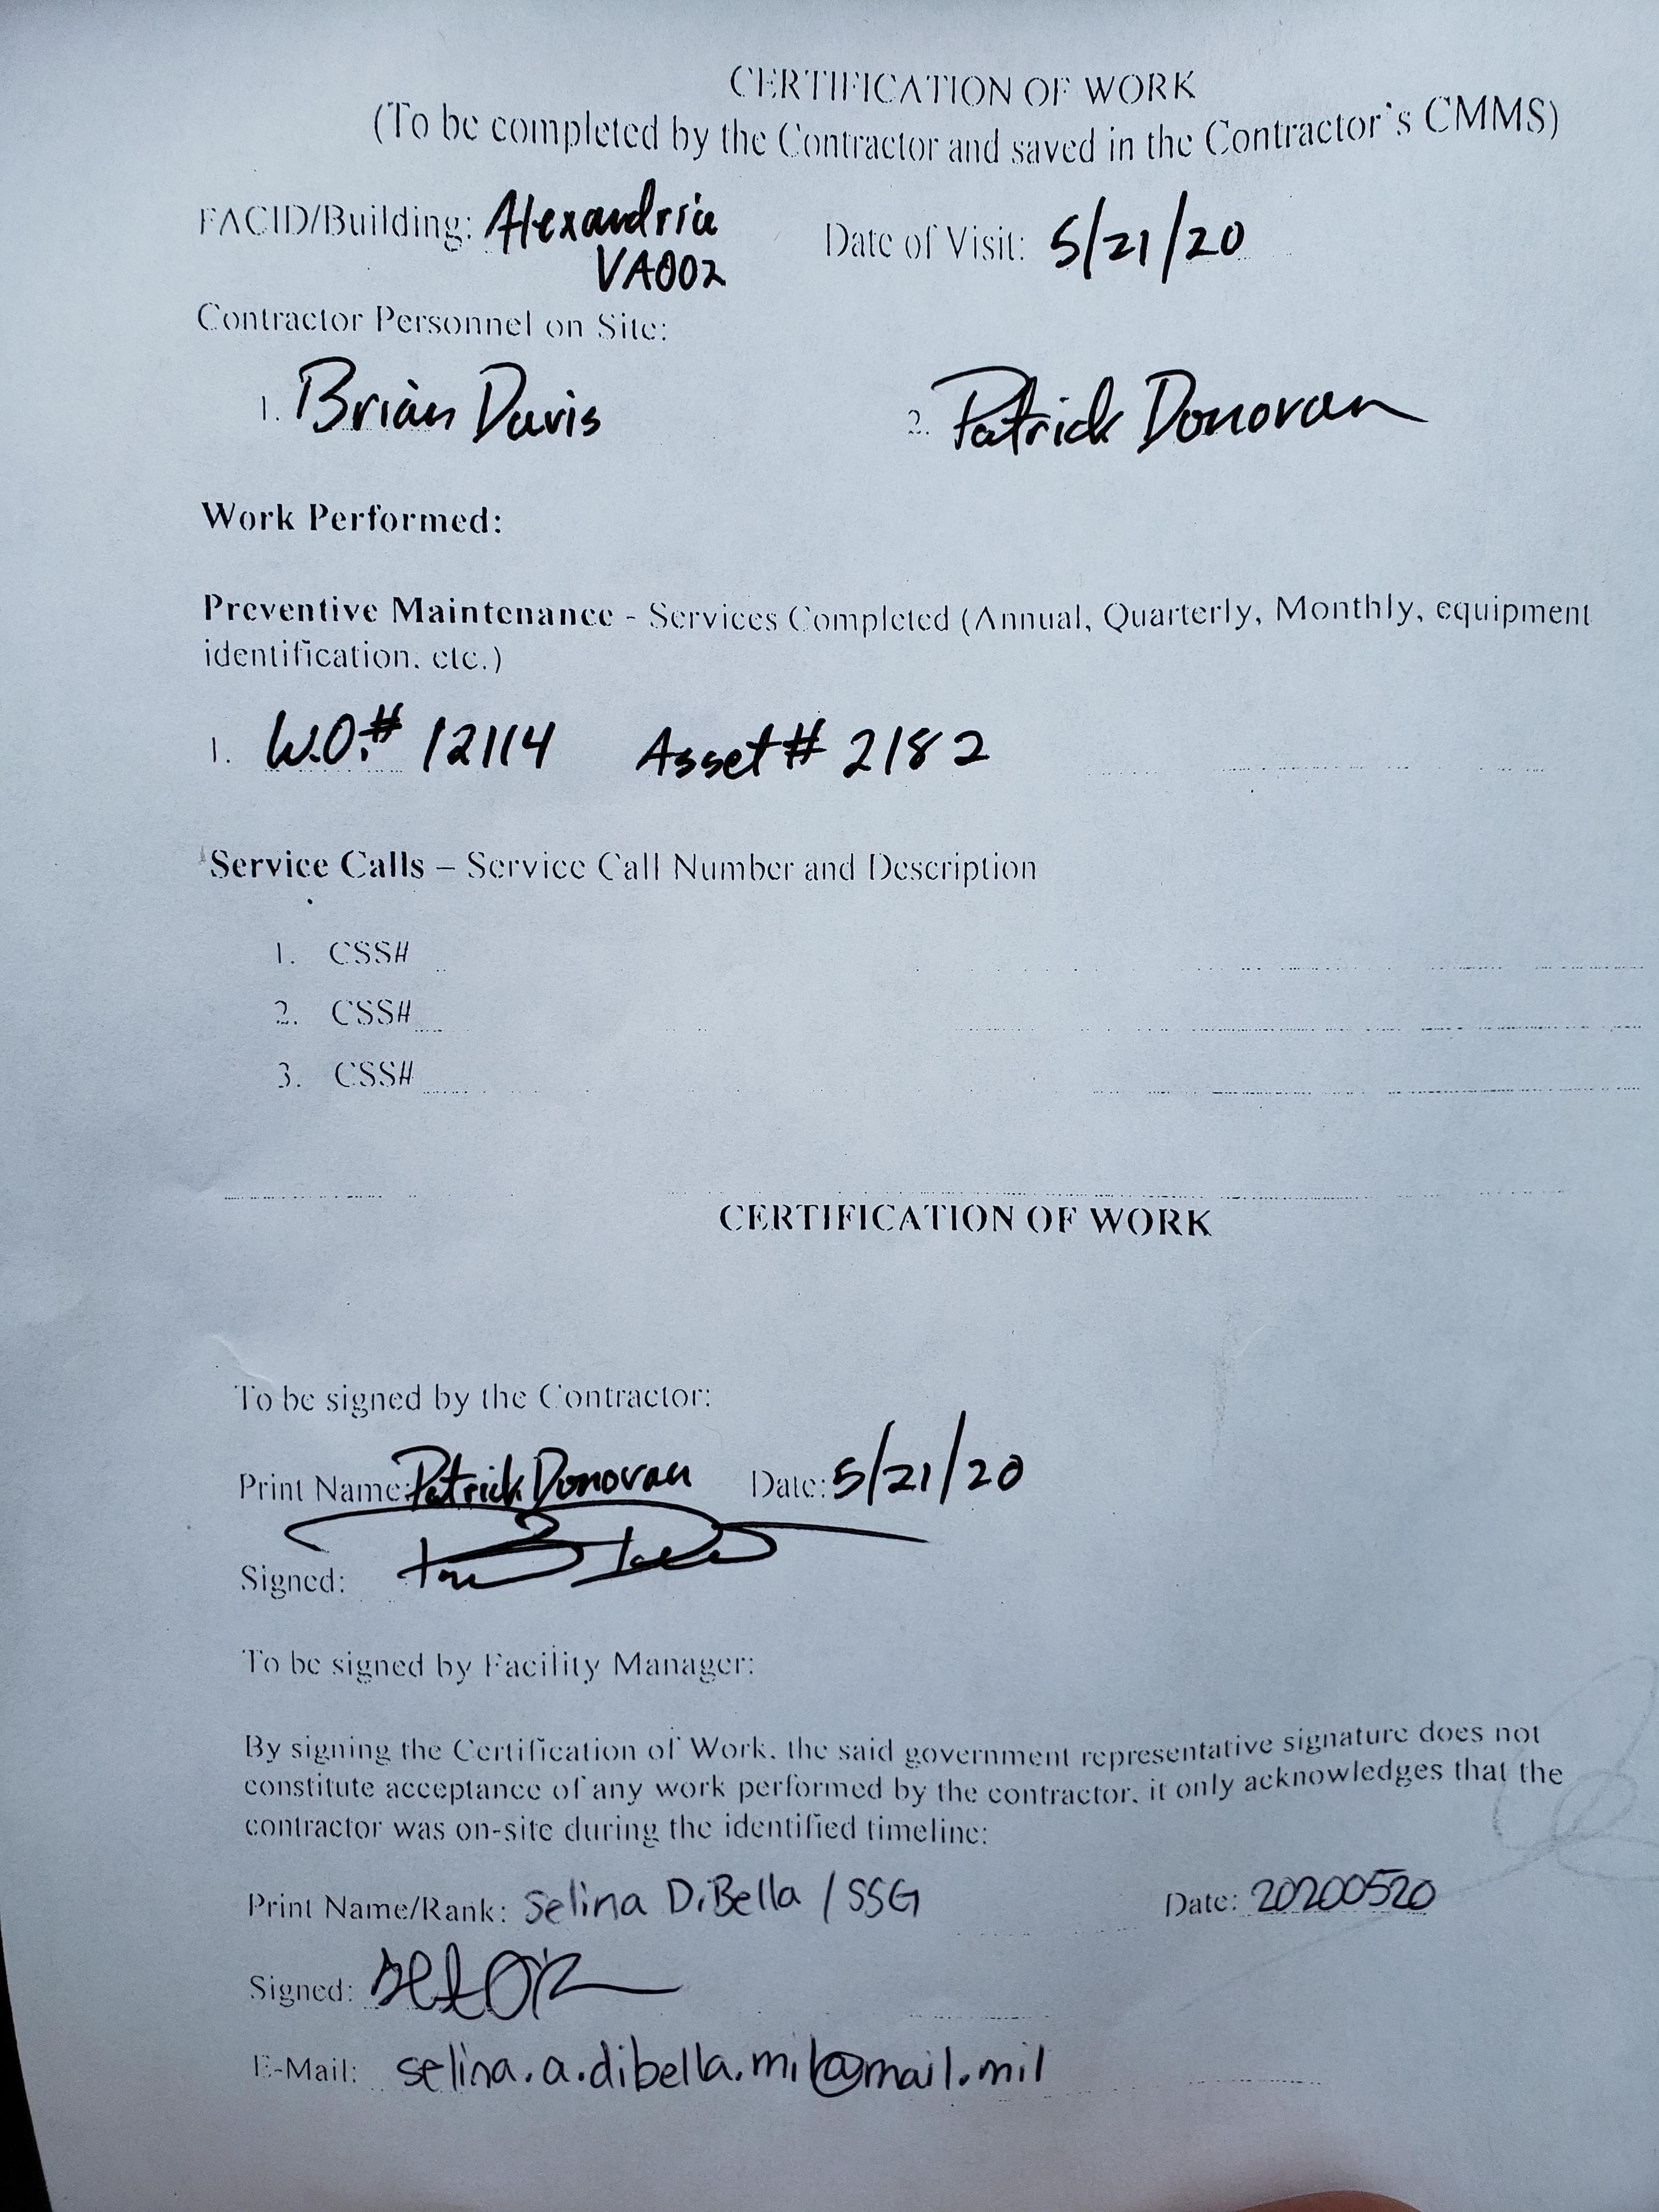 CERTIFICATION OF WORK
(To be completed by the Contractor and saved in the Contractor's CMMS)
FACID/Building: Alexandria Date of Visit: 5/21/20
VA002
Contractor Personnel on Site:
1. Brian Davis 2. Patrick Donovan
Work Performed:
Preventive Maintenance - Services Completed (Annual, Quarterly, Monthly, equipment
identification, etc.)
1. W.O.# 12114 Asset# 2182
Service Calls – Service Call Number and Description
1. CSS#
2. CSS#
3. CSS#
CERTIFICATION OF WORK
To be signed by the Contractor:
Print Name: Patrick Donovan Date: 5/21/20
Signed:
To be signed by Facility Manager:
By signing the Certification of Work, the said government representative signature does not
constitute acceptance of any work performed by the contractor, it only acknowledges that the
contractor was on-site during the identified timeline:
Print Name/Rank: Selina DiBella / SSG Date: 20200520
Signed:
E-Mail: selina.a.dibella.mil@mail.mil